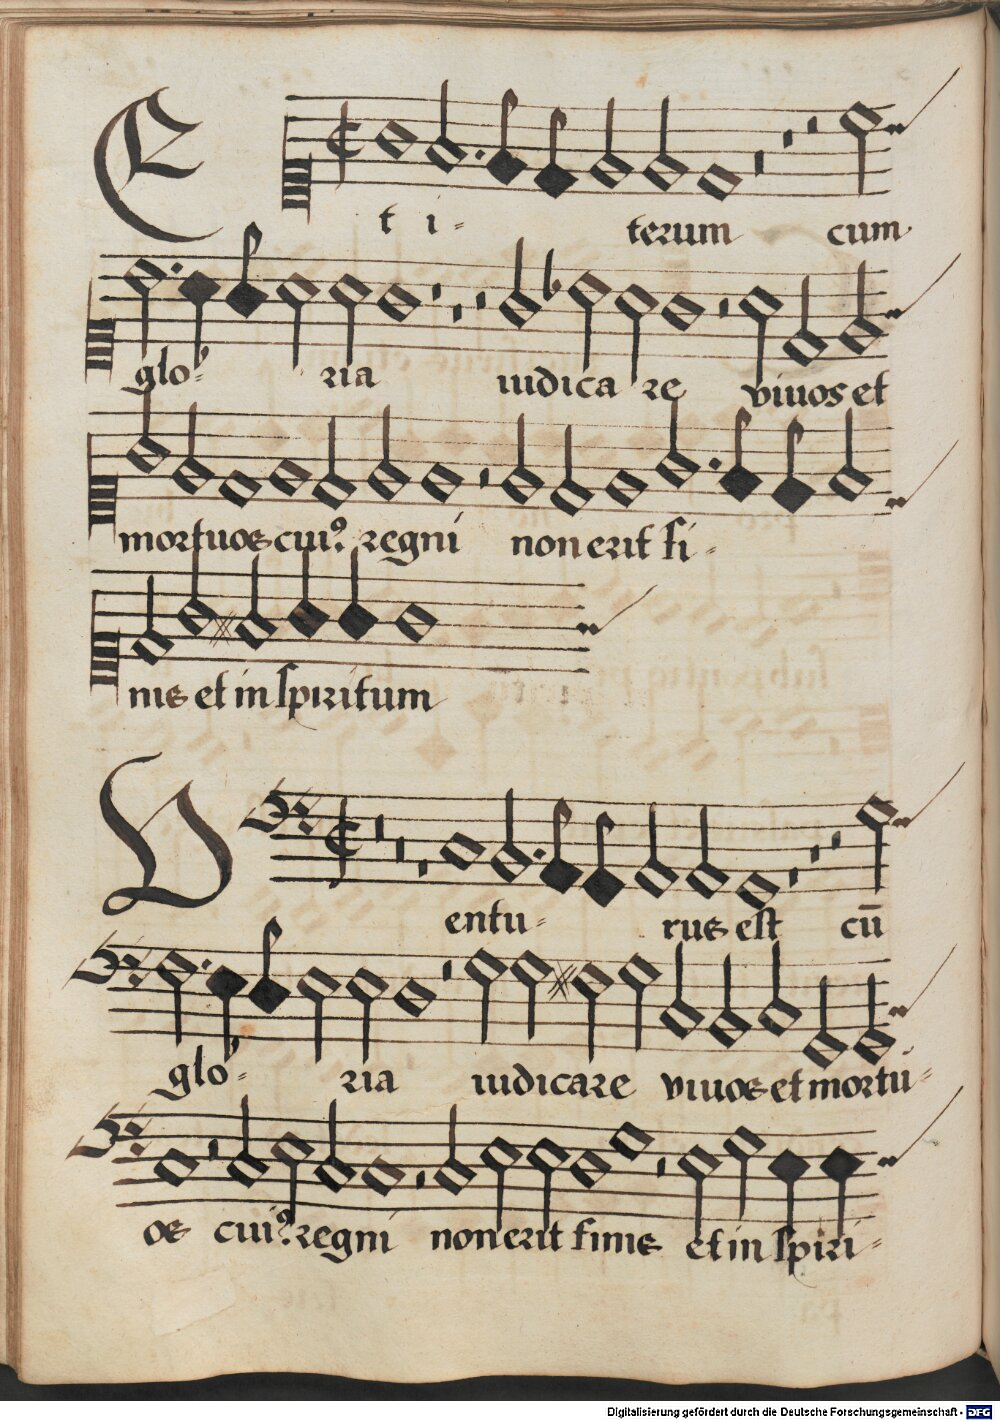 E t i- terum cum
glo- ria iudica re viuos et
mortuos cuiꝰ regni non erit fi-
nis et in spiritum
V entu- rus est cū
glo- ria iudicare viuos et mortu-
os cuiꝰ regni non erit finis et in spiri-
Digitalisierung gefördert durch die Deutsche Forschungsgemeinschaft - DFG